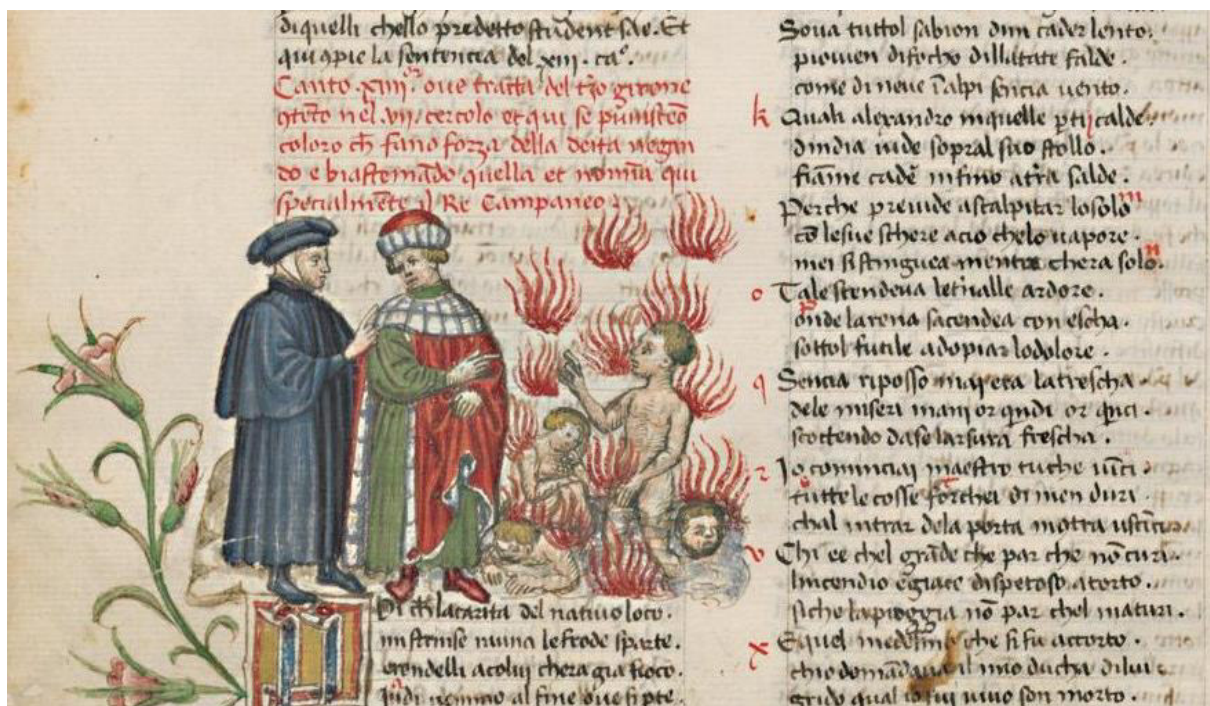 di quelli chello predetto studente sae. Et
qui cpie la sentencia del xiii. caº.
Canto .xiiii. oue tratta del tzo girone
gtēto nel .vii. cercolo et qui se puniscōo
coloro ch fano forza della deita negan
do e biastemādo quella et nomīa qui
specialmēte il Re Campaneo.
Di ch la carita del natiuo loco.
mi strinse
le frode sparte.
rendelli a colui chera gia fioco.
Indi uenimo al fine oue si pte.
Soua tuttol sabion dun cader lento.
piouen di focho dillatate falde.
come di neue ī alpi sencia uento.
k Quali alexandro in quelle ptij calde.
dindia uide sopral suo stollo.
fiāme cadē infino atrā salde.
Perche preuide a scalpitar lo solo m
cō le sue schere acio che lo uapore.
mei si stinguea mentre chera solo. n
o Tale scendeua letnalle ardore.
p
onde larena sacendea con escha.
sottol fucile adopiar lo dolore.
q Sencia riposso mai era la trescha.
dele miseri mani or qndi or qnci.
scottendo da se larsura frescha.
r Io cominciai maestro tu che uīci.
tutte le cosse forche i dimon duri.
chal intrar dela porta
v Chi ee chel grāde che par che nō curi.
lincendio e giace dispetoso a torto.
si che la pioggia nō par chel maturi.
x E quel medesimo che si fu accorto.
chio domādaua il mio ducha di lui.
grido qual io fui uiuo son morto.